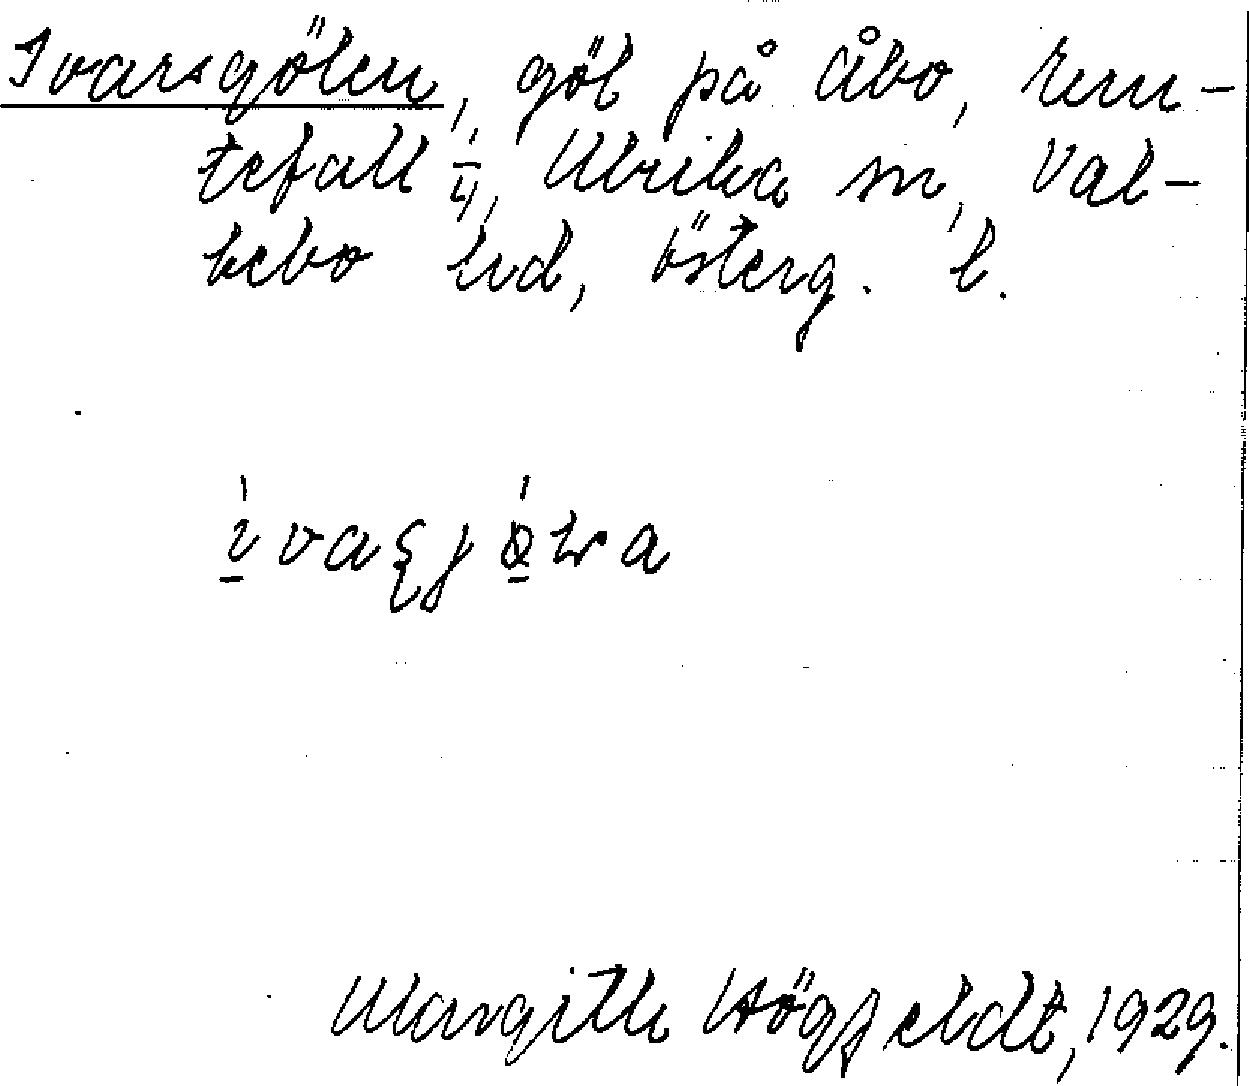 Ivarsgölen, göl på Åbo, rem-
tefall i, Ulrika sn, Val-
kebo hd, Österg. l.
Margith Högfeldt, 1929.